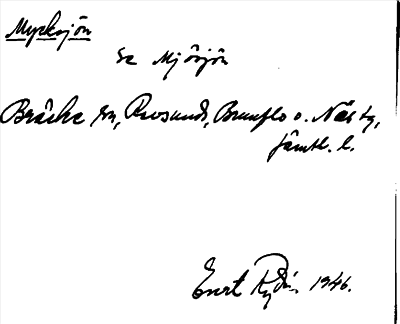 Myrksjön
se Mjösjön
Bräcke sn, Revsunds, Brunflo o. Näs tg,
Jämtl. l.
Evert Rydén 1946.